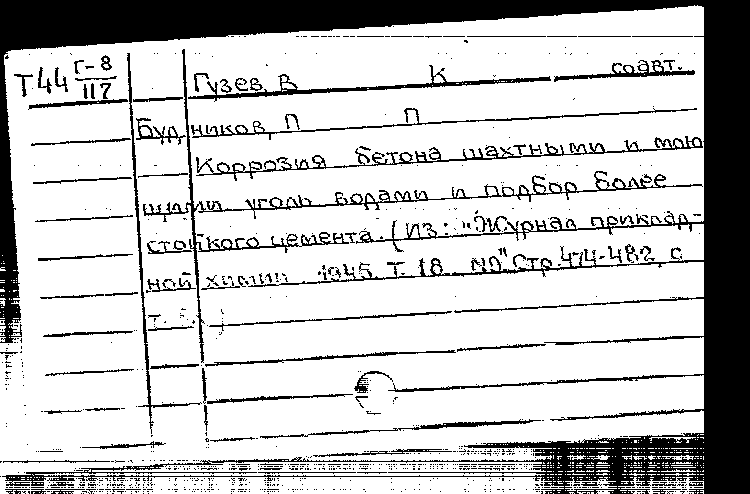 Т44 Г-8/117 Гузев, В К соавт.
Будников, П П
Коррозия бетона шахтными и мою
щими уголь водами и подбор более
стойкого цемента. (Из: "Журнал приклад-
ной химии 1945 Т. 18 №" Стр. 474-482, с